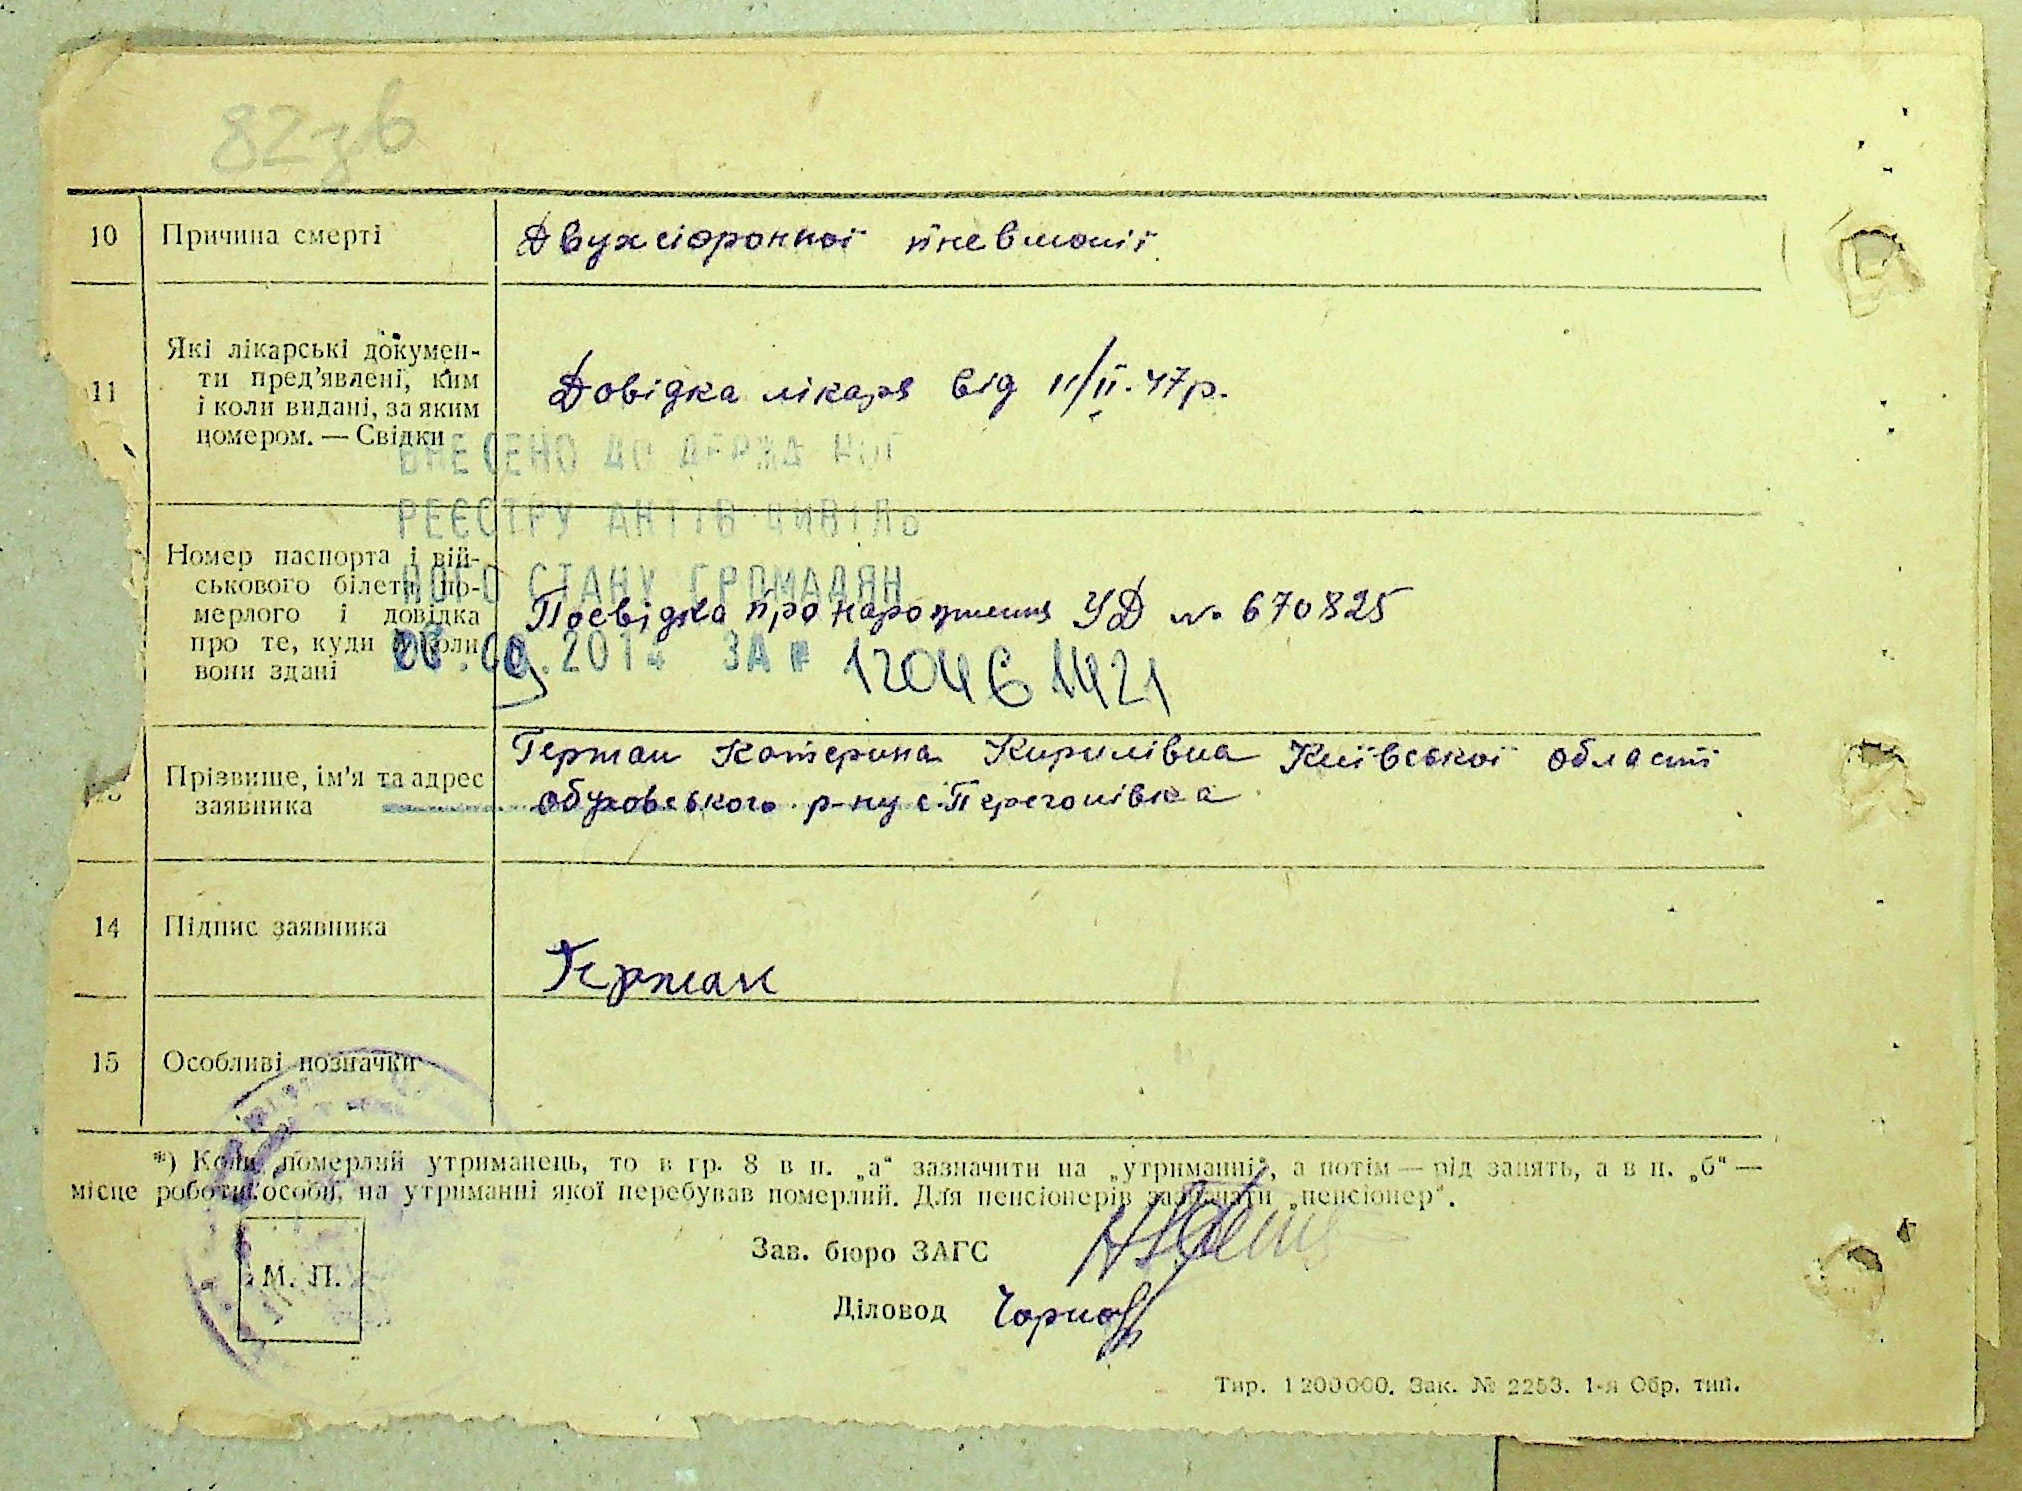 82зв
10 Причина смерті Двухсторонної пневмонії
11 Які лікарські докумен-
ти пред'явлені, ким
і коли видані, за яким
номером. — Свідки
Довідка лікаря від 11/II.47р.
ВНЕСЕНО ДО ДЕРЖА НОГ
РЕЄСТРУ АКТІВ ЦИВІЛЬ
НОГО СТАНУ ГРОМАДЯН
Номер паспорта і вій-
ськового білету по-
мерлого і довідка
про те, куди й коли
вони здані
Посвідка про народження УД № 670825
.09.2014 ЗА № 12046 1421
Прізвище, ім'я та адрес
заявника
Герман Катерина Кирилівна Київської області
Обуховського р-ну с. Перегонівка
14 Підпис заявника Герман
15 Особливі позначки
*) Коли померлий утриманець, то в гр. 8 в п. „а“ зазначити на „утриманні“, а потім — рід занять, а в п. „б“ —
місце роботи особи, на утриманні якої перебував померлий. Для пенсіонерів зазначати „пенсіонер“.
М. П.
Зав. бюро ЗАГС
Діловод
Тир. 1200000. Зак. № 2253. 1-я Обр. тип.